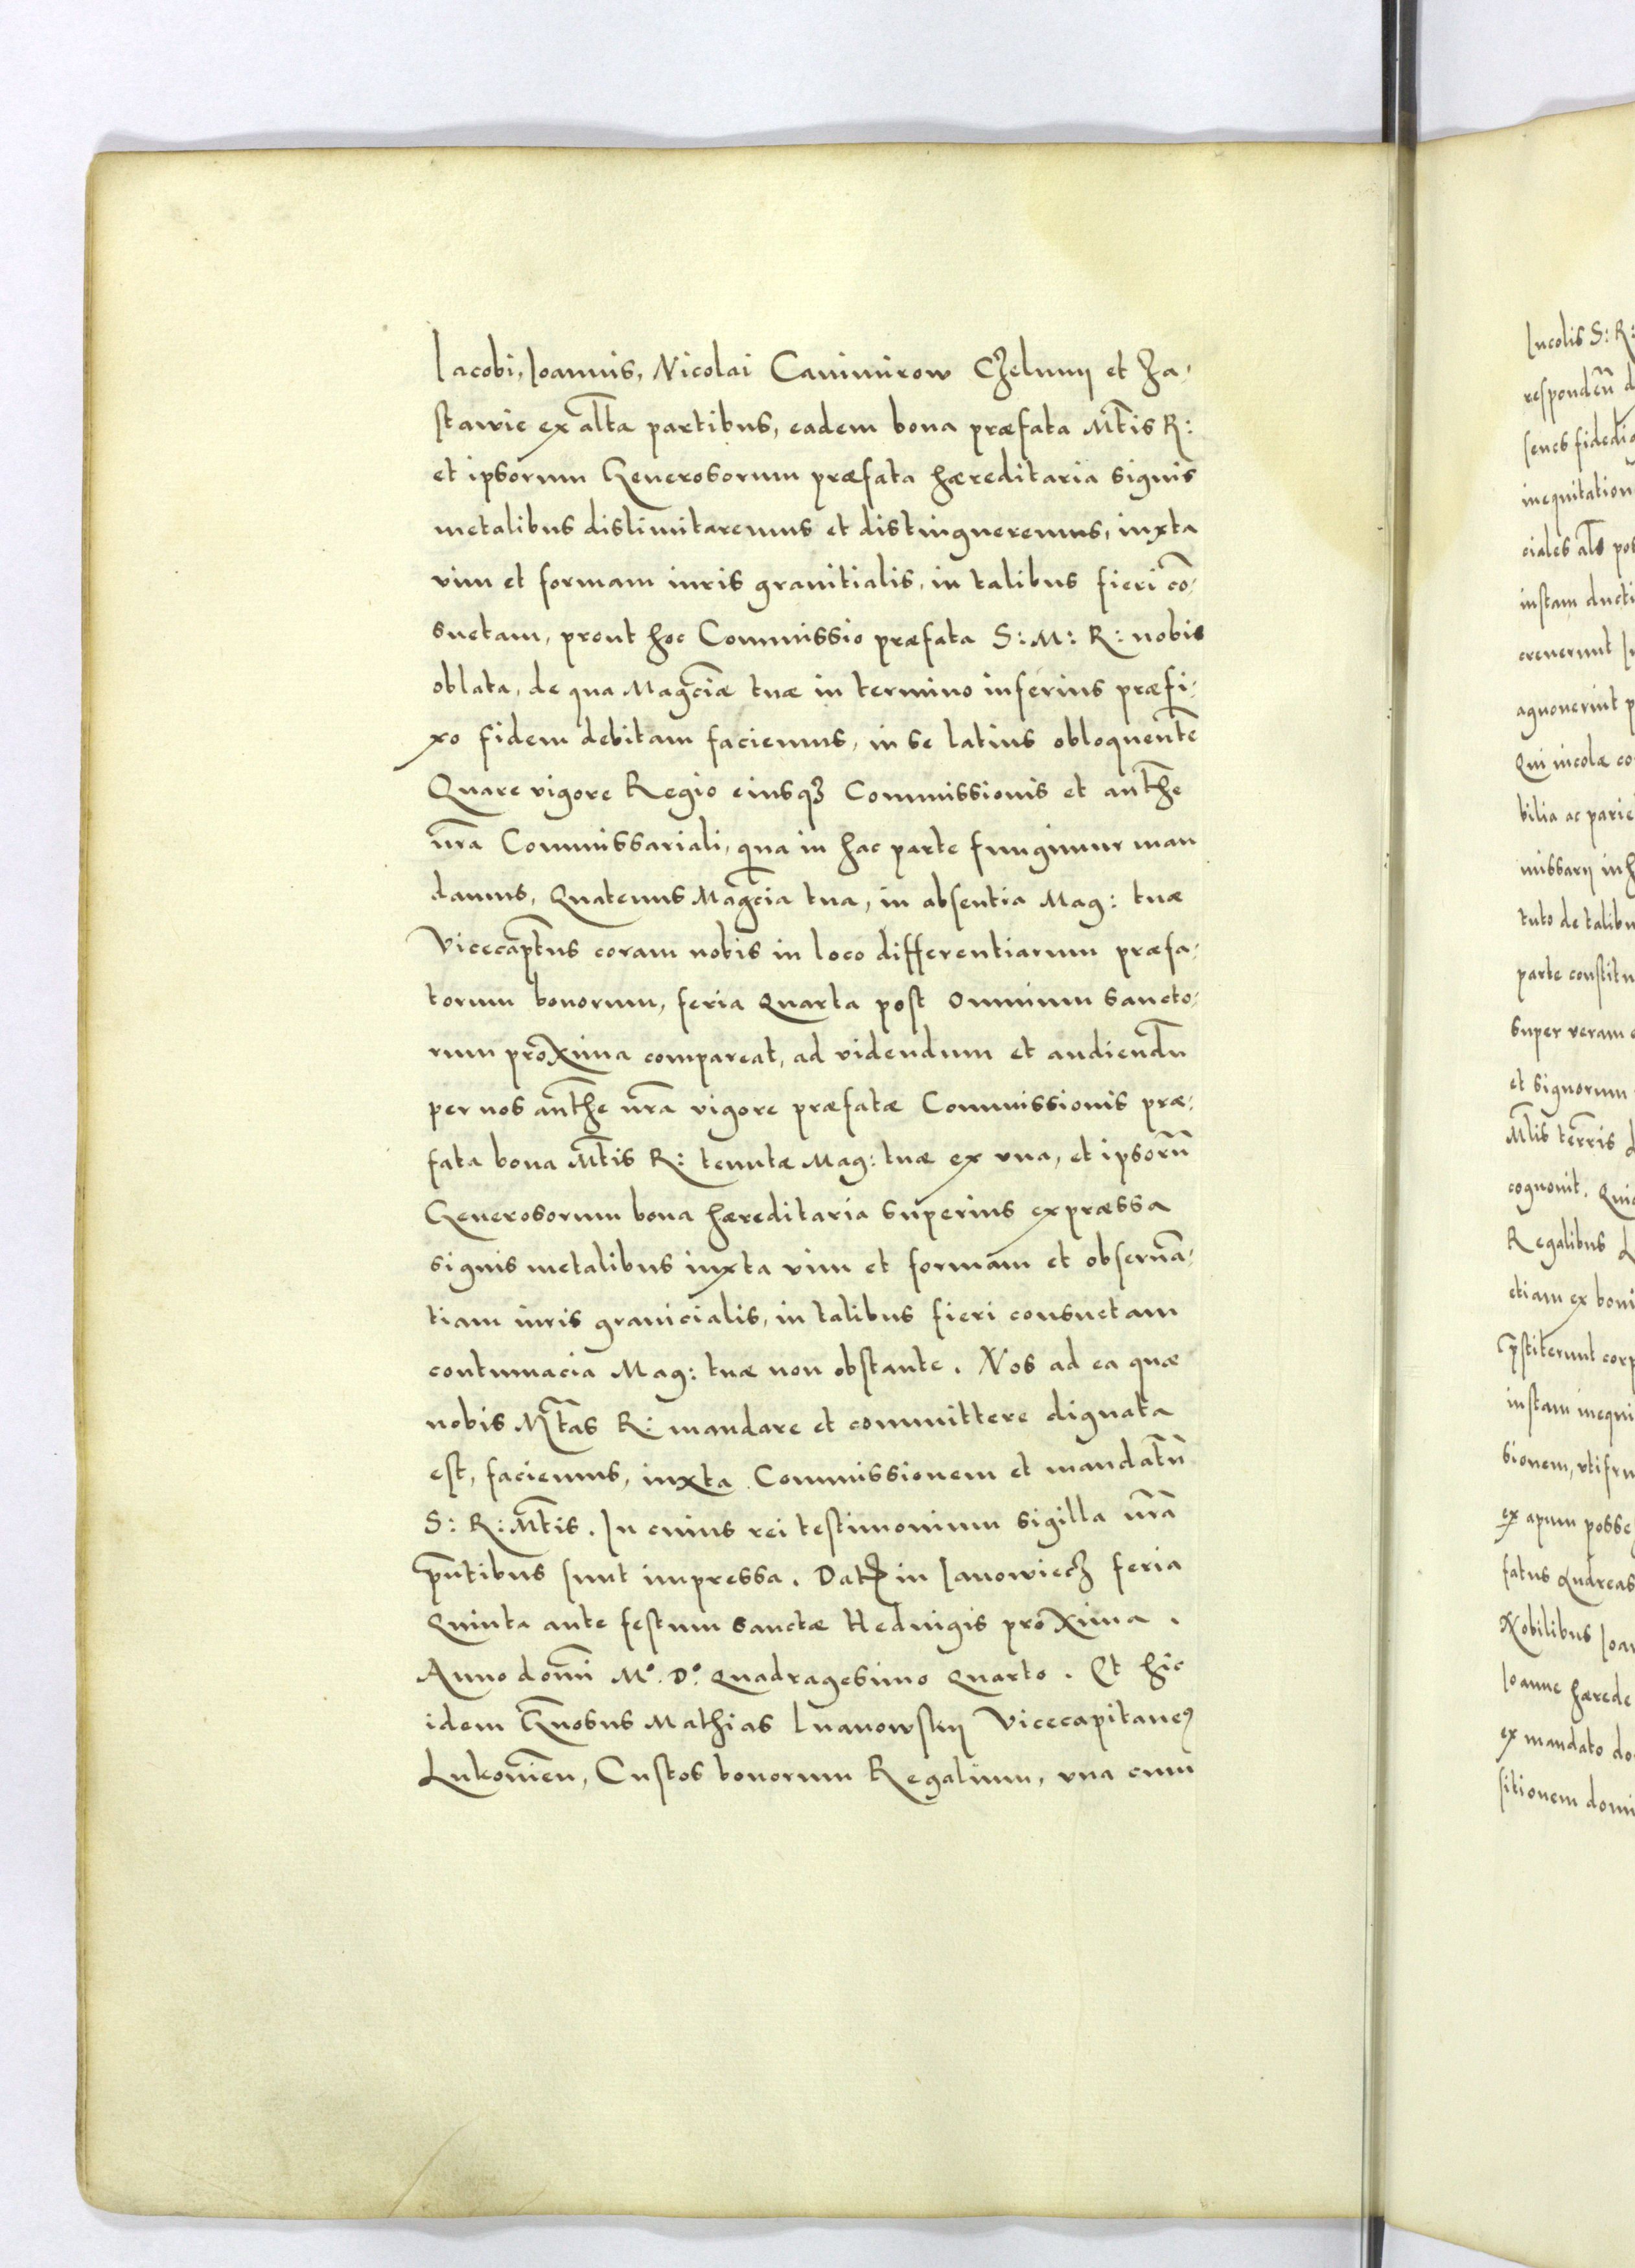 Iacobi, Ioannis, Nicolai Canimirow Chelmij et Za-
stawie ex alt̃a partibus, eadem bona præfata Mt̃is R:
et ipsorum Generosorum præfata hæreditaria signis
metalibus dislimitaremus et distingueremus, iuxta
vim et formam iuris granitialis, in talibus fieri cõ-
suetam, prout hoc Commissio præfata S: M: R: nobis
oblata, de qua Magc̃iæ tuæ in termino inferius præfi-
xo fidem debitam faciemus, in se latius obloquent̃e
Quare vigore Regio eiusqȝ Commissionis et aut̃he
nr̃a Commissariali, qua in hac parte fungimur man
damus, Quatenus Magc̃ia tua, in absentia Mag: tuæ
Vicecapt̃us coram nobis in loco differentiarum præfa-
torum bonorum, feria Quarta post Omnium Sancto-
rum proxima compareat, ad videndum et audiend̃u
per nos aut̃he nr̃a vigore præfatæ Commissionis præ-
fata bona Mt̃is R: tenutæ Mag: tuæ ex vna, et ipsorũ
Generosorum bona hæreditaria superius expræssa
signis metalibus iuxta vim et formam et obseruã-
tiam iuris granicialis, in talibus fieri consuetam
contumacia Mag: tuæ non obstante. Nos ad ea quæ
nobis Mt̃as R: mandare et committere dignata
est, faciemus, iuxta Commissionem et mandatũ
S: R: Mt̃is. In cuius rei testimonium sigilla nr̃a
p̃ntibus sunt impressa. Datꝭ in Ianowiecz feria
Quinta ante festum Sanctæ Heduigis proxima.
Anno domĩ Mº. Dº. Quadragesimo Quarto. Et hic
idem Gñosus Mathias Iuanowskij Vicecapitaneꝰ
Lukovieñ, Custos bonorum Regalium, vna cum
Incolis S: R:
respondeñ d
senes fidedig
inequitation
ciales als̃ pos
iustam ducti
creuerunt Iu
agnouerint p
Qui incolæ co
bilia ac parie
missarij in h
tuto de talibu
parte constitu
super veram
et signorum
Mt̃is terris d
cognouit. Quia
Regalibus L
etiam ex boni
p̃stiterunt corp
iustam inequi
sionem, vti fru
ex apum posse
fatus Quæreas
Nobilibus Ioan
Ioanne hærede
ex mandato do
sitionem domi